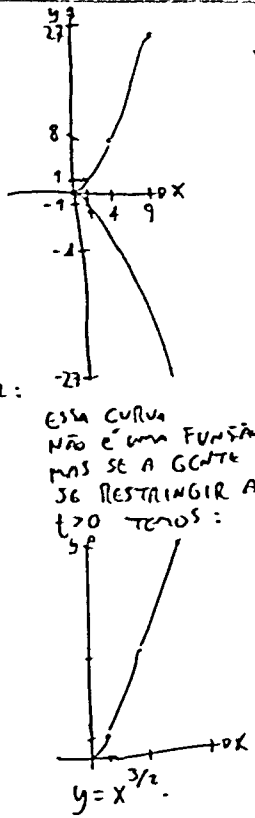 y
27
8
1
-1
1 4 9 x
-8
-27
:
ESSA CURVA
NÃO É UMA FUNÇÃO
MAS SE A GENTE
SE RESTRINGIR A
t>0 TEMOS:
y
x
y = x^{3/2}.